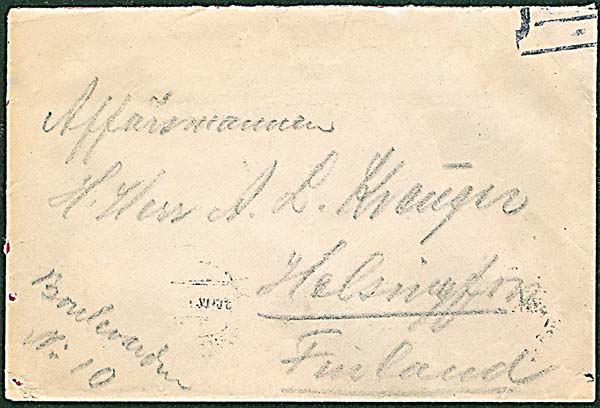 Affärsmannen
H. Herr A. L. Krauger
Helsingfors
Finland
Boulevarden
Nr 10